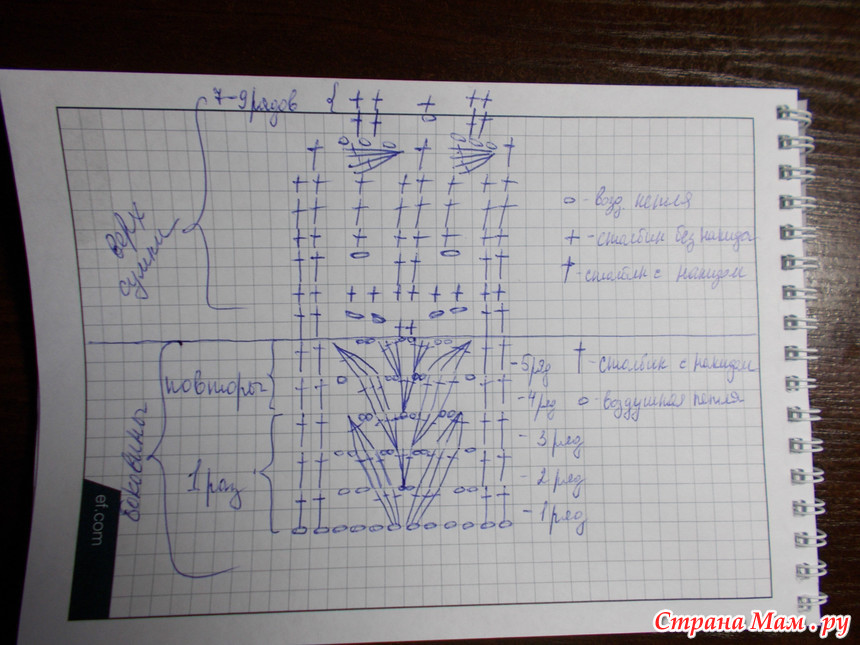 7-9 рядов
верх
сумки
о - возд. петля
+ - столбик без накида
† - столбик с накидом
повторы
- 5 ряд
† - столбик с накидом
- 4 ряд
о - воздушная петля
боковины
- 3 ряд
1 раз
- 2 ряд
- 1 ряд
ef.com
Страна Мам.ру